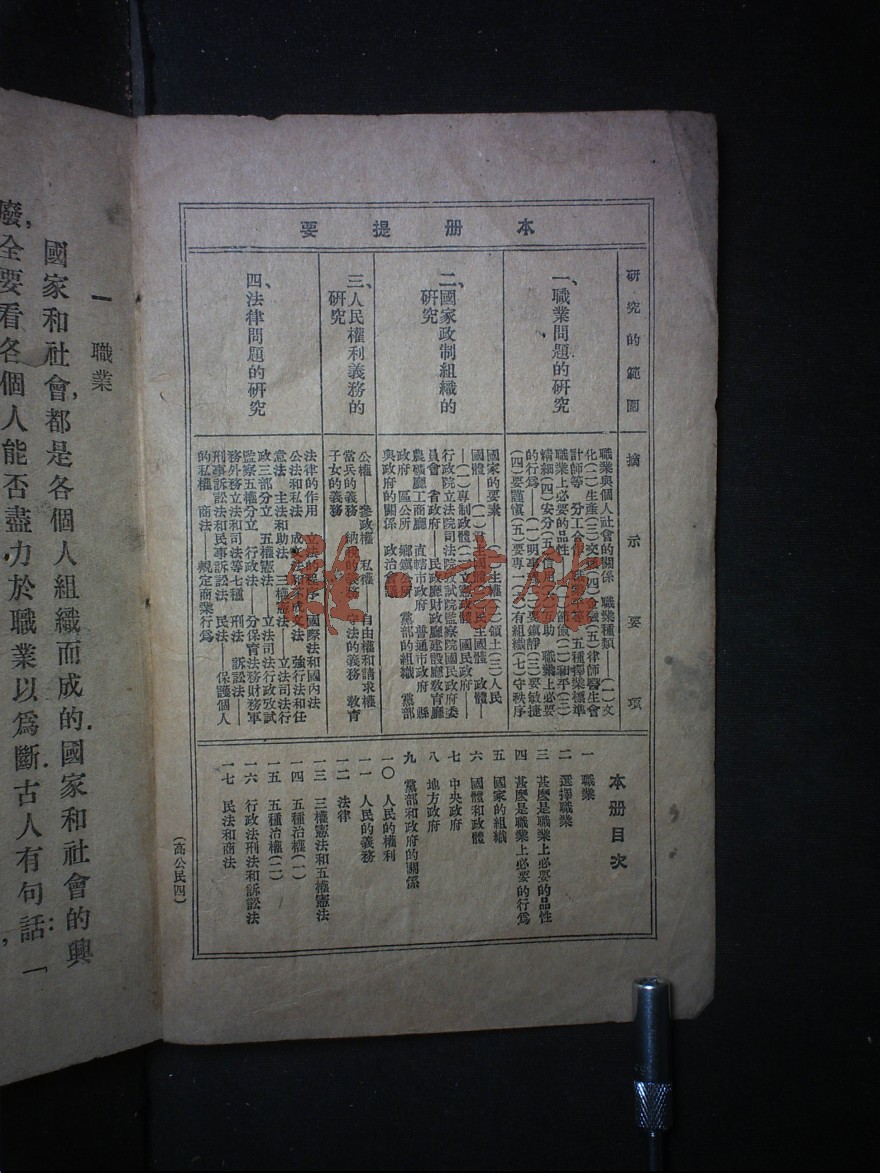 本册提要
研究的範圍
一、職業問題的研究
二、國家政制組織的
研究
三、人民權利義務的
研究
四、法律問題的研究
摘示要項
職業與個人社會的關係 職業種類——(一)文
化(二)生產(三)交通(四)金融(五)律師醫生會
計師等 分工合作
職業上必要的品性
精細(四)安分(五)
的行爲——(一)明
(四)要謹慎(五)要專一(六)有組織(七)守秩序
國家的要素——(一)主權(二)領土(三)人民
國體——(一)君主國體(二)民主國體 政體——
(一)專制政體(二)立憲政體 國民政府——
行政院立法院司法院考試院監察院國民政府委
員會 省政府——民政廳財政廳建設廳教育廳
農礦廳工商廳 直轄市政府 普通市政府 縣
政府 區公所 鄉鎮公所 黨部的組織 黨部
與政府的關係 政治會議
公權——參政權 私權——自由權和請求權
當兵的義務 納稅的義務 守法的義務 教育
子女的義務
法律的作用 立法的程序 國際法和國內法
公法和私法 成文法和不成文法 強行法和任
意法 主法和助法 三權憲法——立法司法行
政三部分立 五權憲法——立法司法行政考試
監察五權分立 行政法——分保育法務財務軍
務外務立法和司法等七種 刑法 訴訟法——
刑事訴訟法和民事訴訟法 民法——保護個人
的私權 商法——規定商業行爲
本册目次
一 職業
二 選擇職業
三 甚麼是職業上必要的品性
四 甚麼是職業上必要的行爲
五 國家的組織
六 國體和政體
七 中央政府
八 地方政府
九 黨部和政府的關係
一〇 人民的權利
一一 人民的義務
一二 法律
一三 三權憲法和五權憲法
一四 五種治權(一)
一五 五種治權(二)
一六 行政法刑法和訴訟法
一七 民法和商法
(高公民四)
一 職業
國家和社會,都是各個人組織而成的.國家和社會的興
廢,全要看各個人能否盡力於職業以爲斷.古人有句話:「